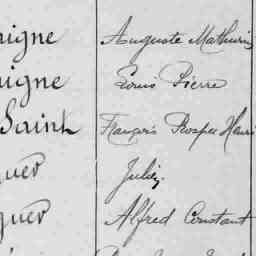 aigne Auguste Mathurin
aigne Louis Pierre
Saint François Prosper Henri
quer Julien
quer Alfred Constant